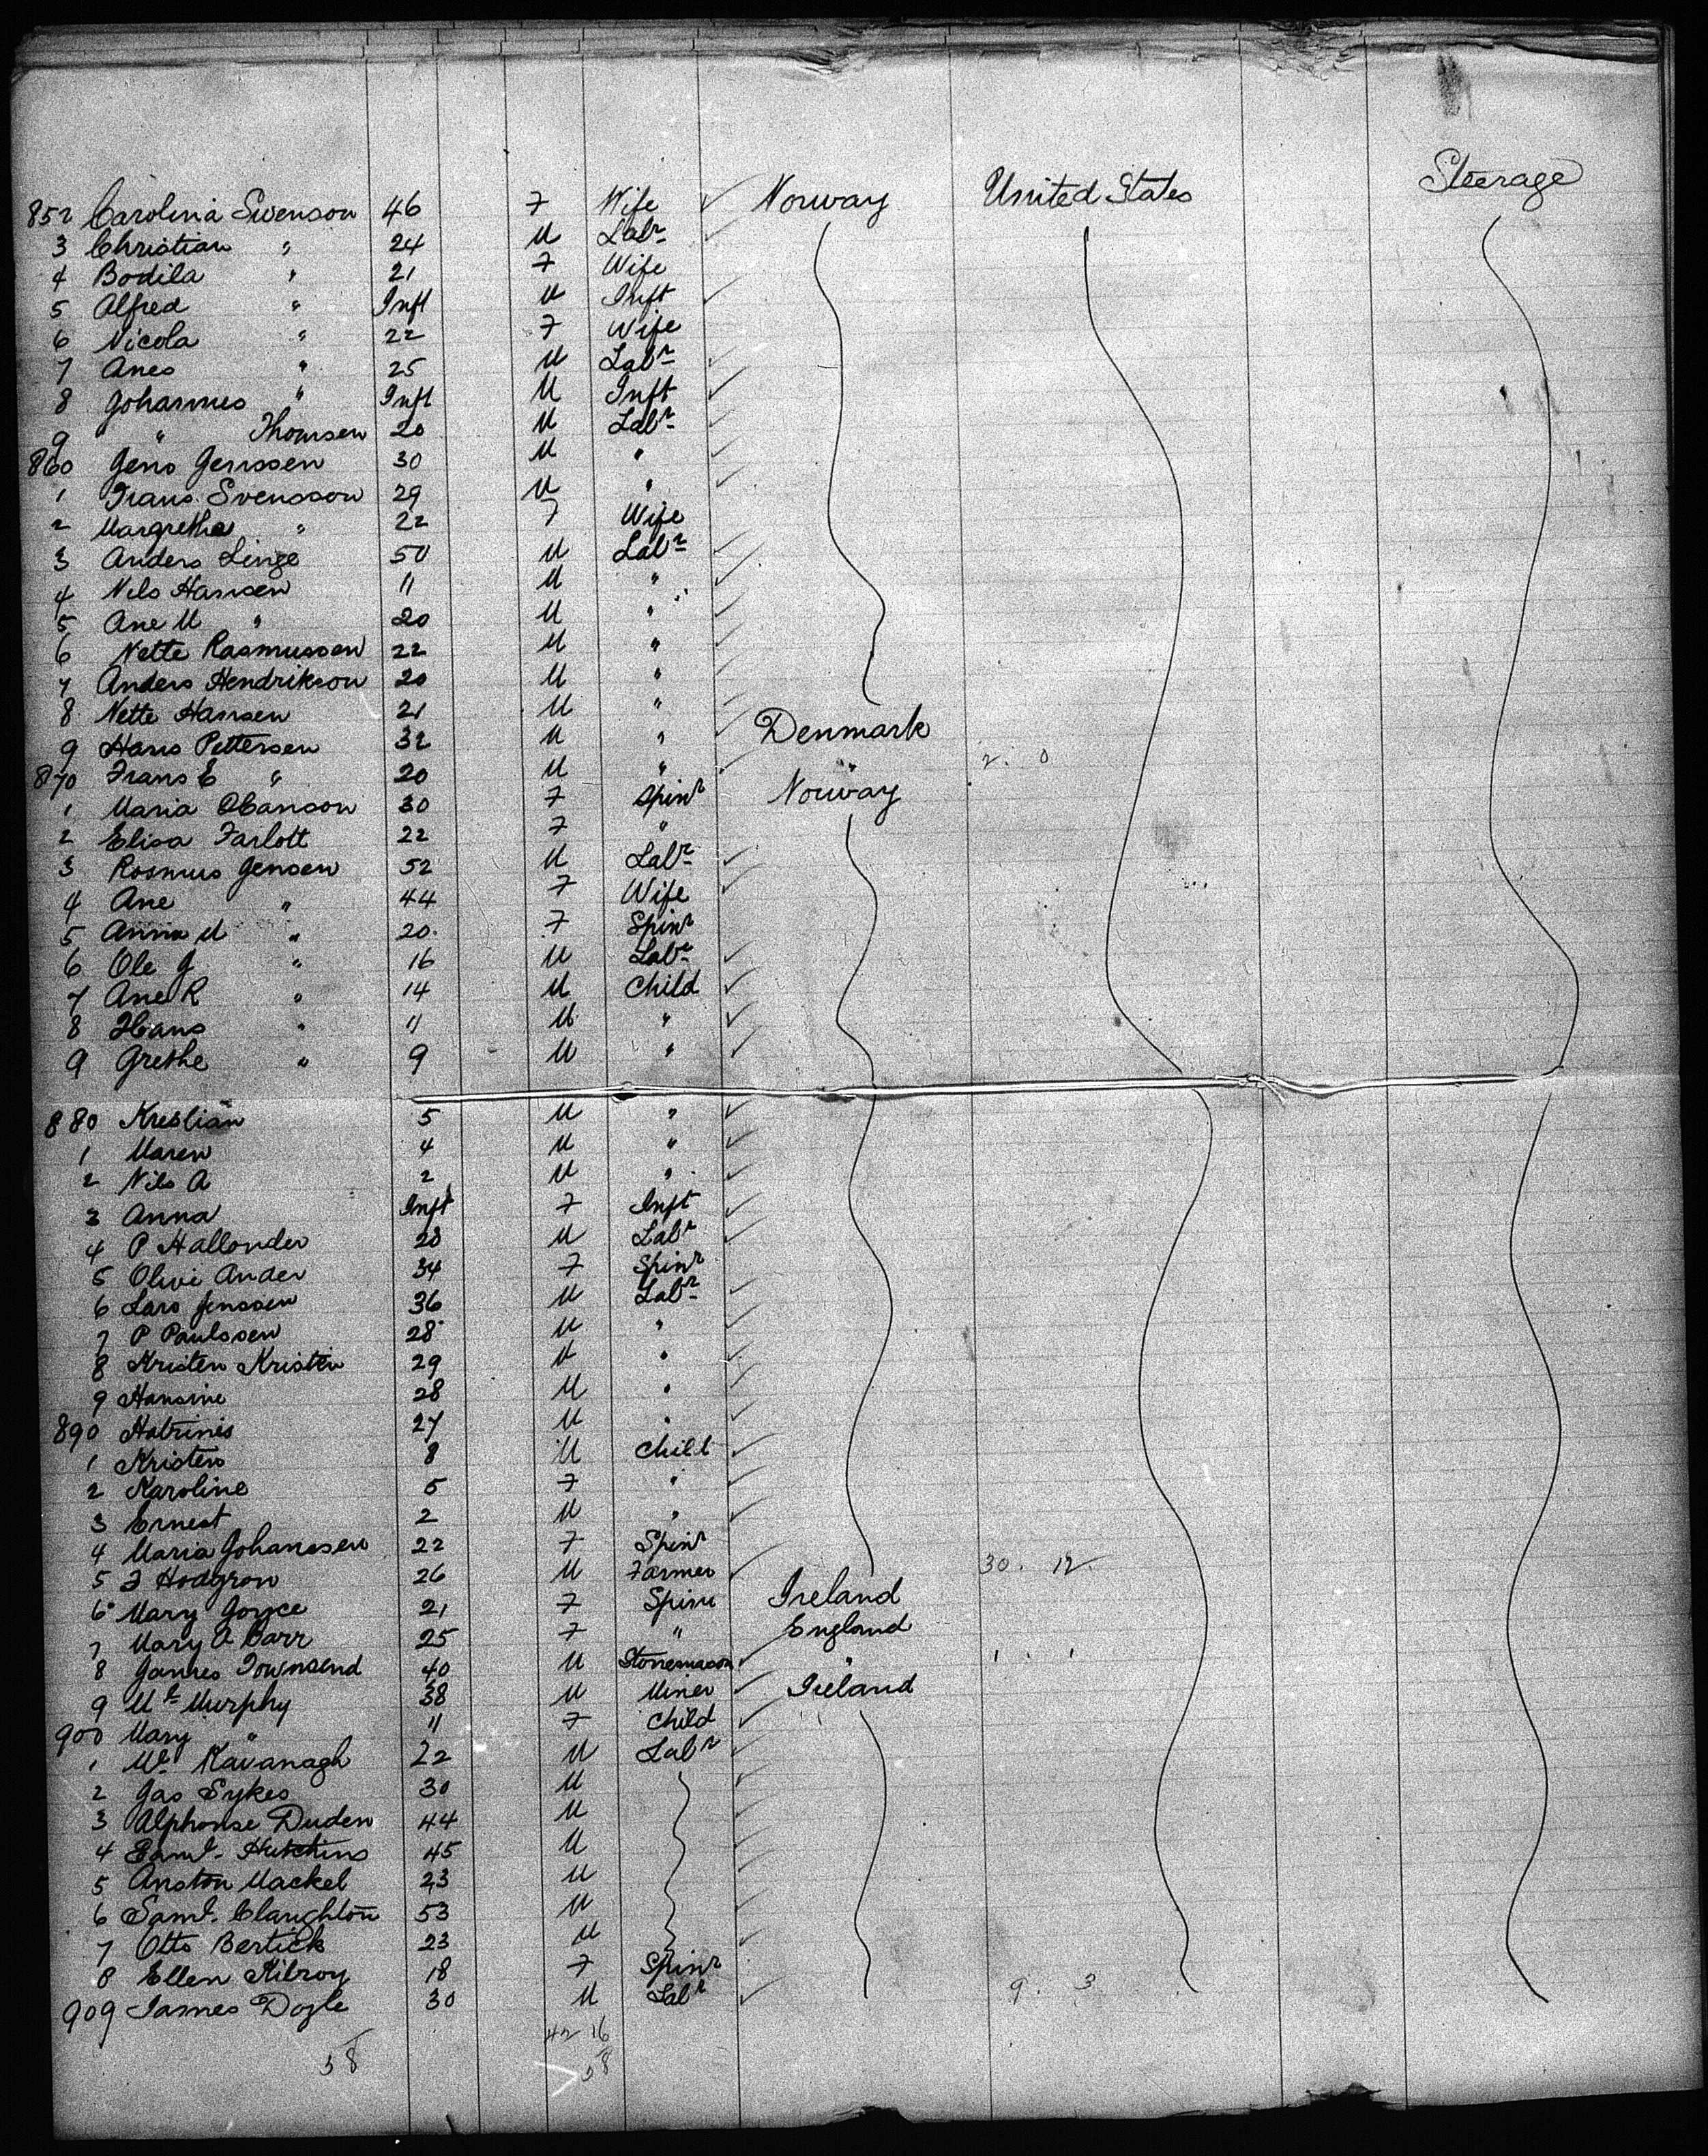 852 Carolina Swenson 46 F Wife Norway United States Steerage
3 Christian " 24 M Labr
4 Bodila " 21 F Wife
5 Alfred " Inft M Inft
6 Nicola " 22 F Wife
7 Anes " 25 M Labr
8 Johannes " Inft M Inft
9 " Thomsen 20 M Labr
860 Jens Jenssen 30 M "
1 Frans Svensson 29 M "
2 Margretha " 22 F Wife
3 Anders Linge 50 M Labr
4 Nils Hansen 11 M "
5 Ane M " 20 M "
6 Nette Rasmussen 22 M "
7 Anders Hendrikson 20 M "
8 Nette Hansen 21 M "
9 Hans Pettersen 32 M " Denmark
870 Frans E " 20 M " " 2. 0
1 Maria 30 F Spinr Norway
2 Elisa Farlott 22 F "
3 Rosmus Jensen 52 M Labr
4 Ane " 44 F Wife
5 Anna M " 20 F Spinr
6 Ole J " 16 M Labr
7 Ane R " 14 M Child
8 Hans " 11 M "
9 Grethe " 9 M "
880 Kreslian 5 M "
1 Maren 4 M "
2 Nils A 2 M "
3 Anna Inft F Inft
4 P Hallonder 28 M Labr
5 Olivi Ander 34 F Spinr
6 Lars Jenssen 36 M Labr
7 P Paulssen 28 M "
8 Kristen Kristin 29 M "
9 Hansine 28 M "
890 Hatrinis 27 M "
1 Kristen 8 M Child
2 Karoline 5 F "
3 Ernest 2 M "
4 Maria Johanssen 22 F Spinr
5 F Hodgron 26 M Farmer 30. 12
6 Mary Joyce 21 F Spinr Ireland
7 Mary A Carr 25 F " England
8 James Townsend 40 M Stonemason " 1. 1
9 Mc Murphy 38 M Miner Ireland
900 Mary " 11 F Child
1 Wm Kavanagh 22 M Labr
2 Jas Sykes 30 M
3 Alphonse Duden 44 M
4 Saml. Hutchins 45 M
5 Anston Mackel 23 M
6 Saml. Claughton 53 M
7 Otto Bertick 23 M
8 Ellen Kilroy 18 F Spinr
909 James Doyle 30 M Labr 9. 3
42 16
58 58